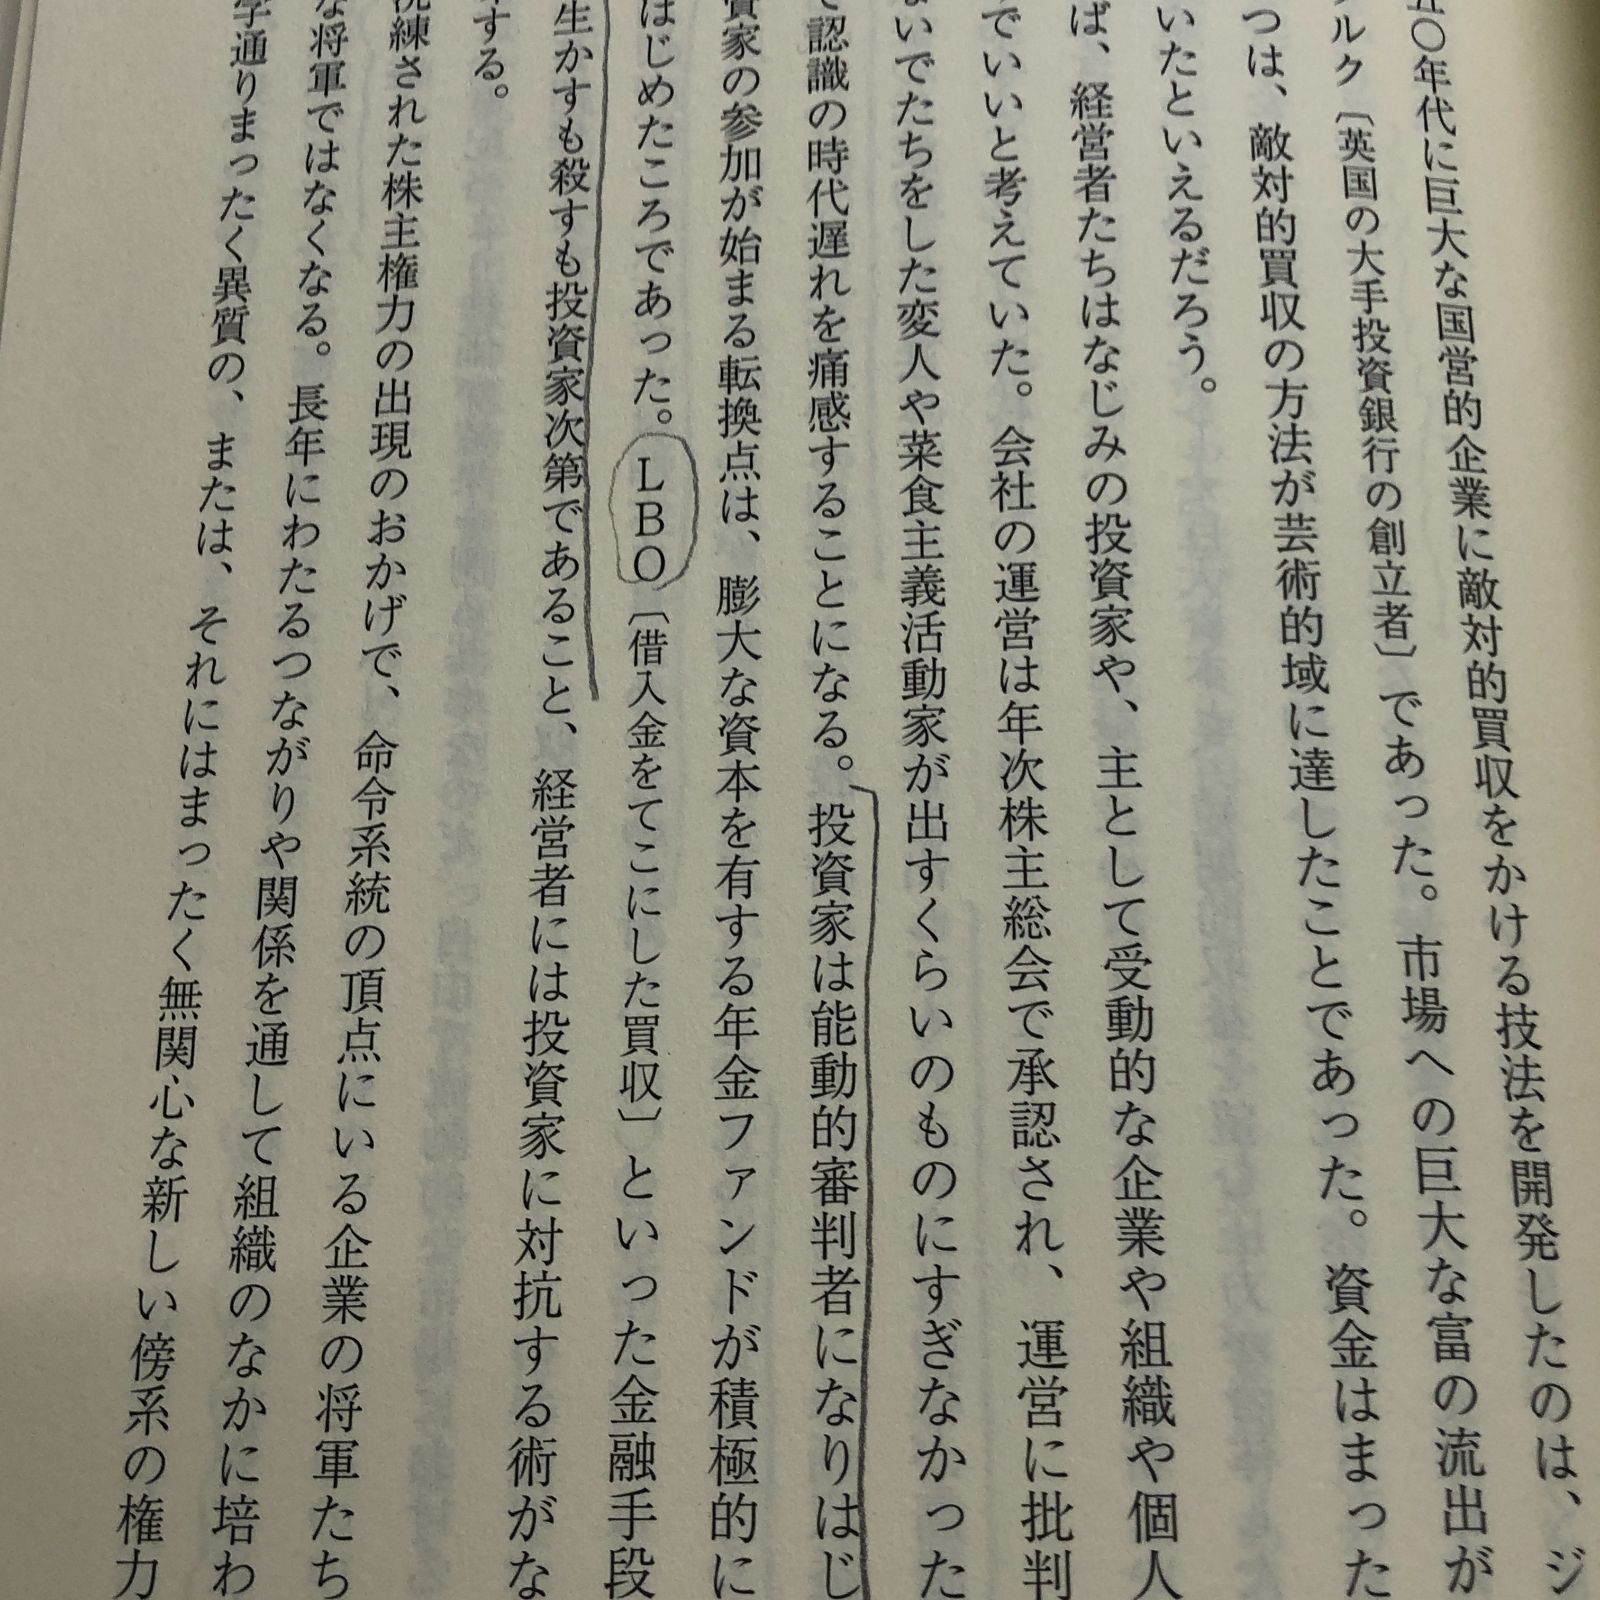 〇年代に巨大な国営的企業に敵対的買収をかける技法を開発したのは、ジ
ルク〔英国の大手投資銀行の創立者〕であった。市場への巨大な富の流出が
つは、敵対的買収の方法が芸術的域に達したことであった。資金はまった
いたといえるだろう。
ば、経営者たちはなじみの投資家や、主として受動的な企業や組織や個人
でいいと考えていた。会社の運営は年次株主総会で承認され、運営に批判
ないでたちをした変人や菜食主義活動家が出すくらいのものにすぎなかった
て認識の時代遅れを痛感することになる。投資家は能動的審判者になりはじ
資家の参加が始まる転換点は、膨大な資本を有する年金ファンドが積極的に
はじめたころであった。LBO〔借入金をてこにした買収〕といった金融手段
生かすも殺すも投資家次第であること、経営者には投資家に対抗する術がな
する。
洗練された株主権力の出現のおかげで、命令系統の頂点にいる企業の将軍たち
な将軍ではなくなる。長年にわたるつながりや関係を通して組織のなかに培わ
字通りまったく異質の、または、それにはまったく無関心な新しい傍系の権力